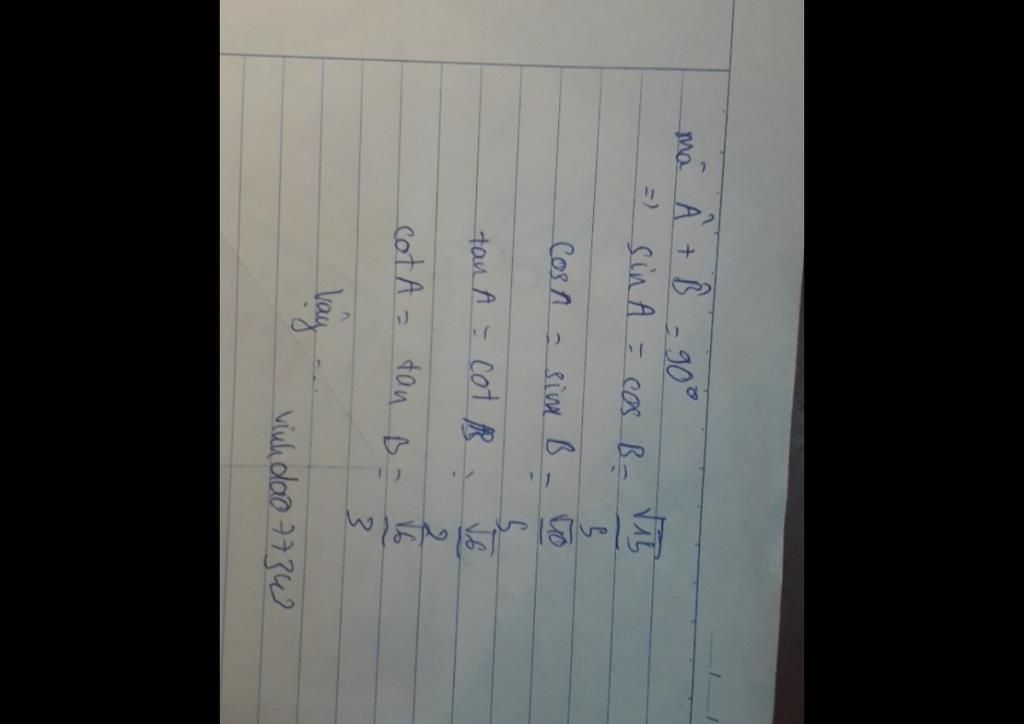 mà Â + B̂ = 90°
=> sin A = cos B = √15/5
cos A = sin B = √10/5
tan A = cot B = √6/2
cot A = tan B = √6/3
Vậy ...
vinhdao77343